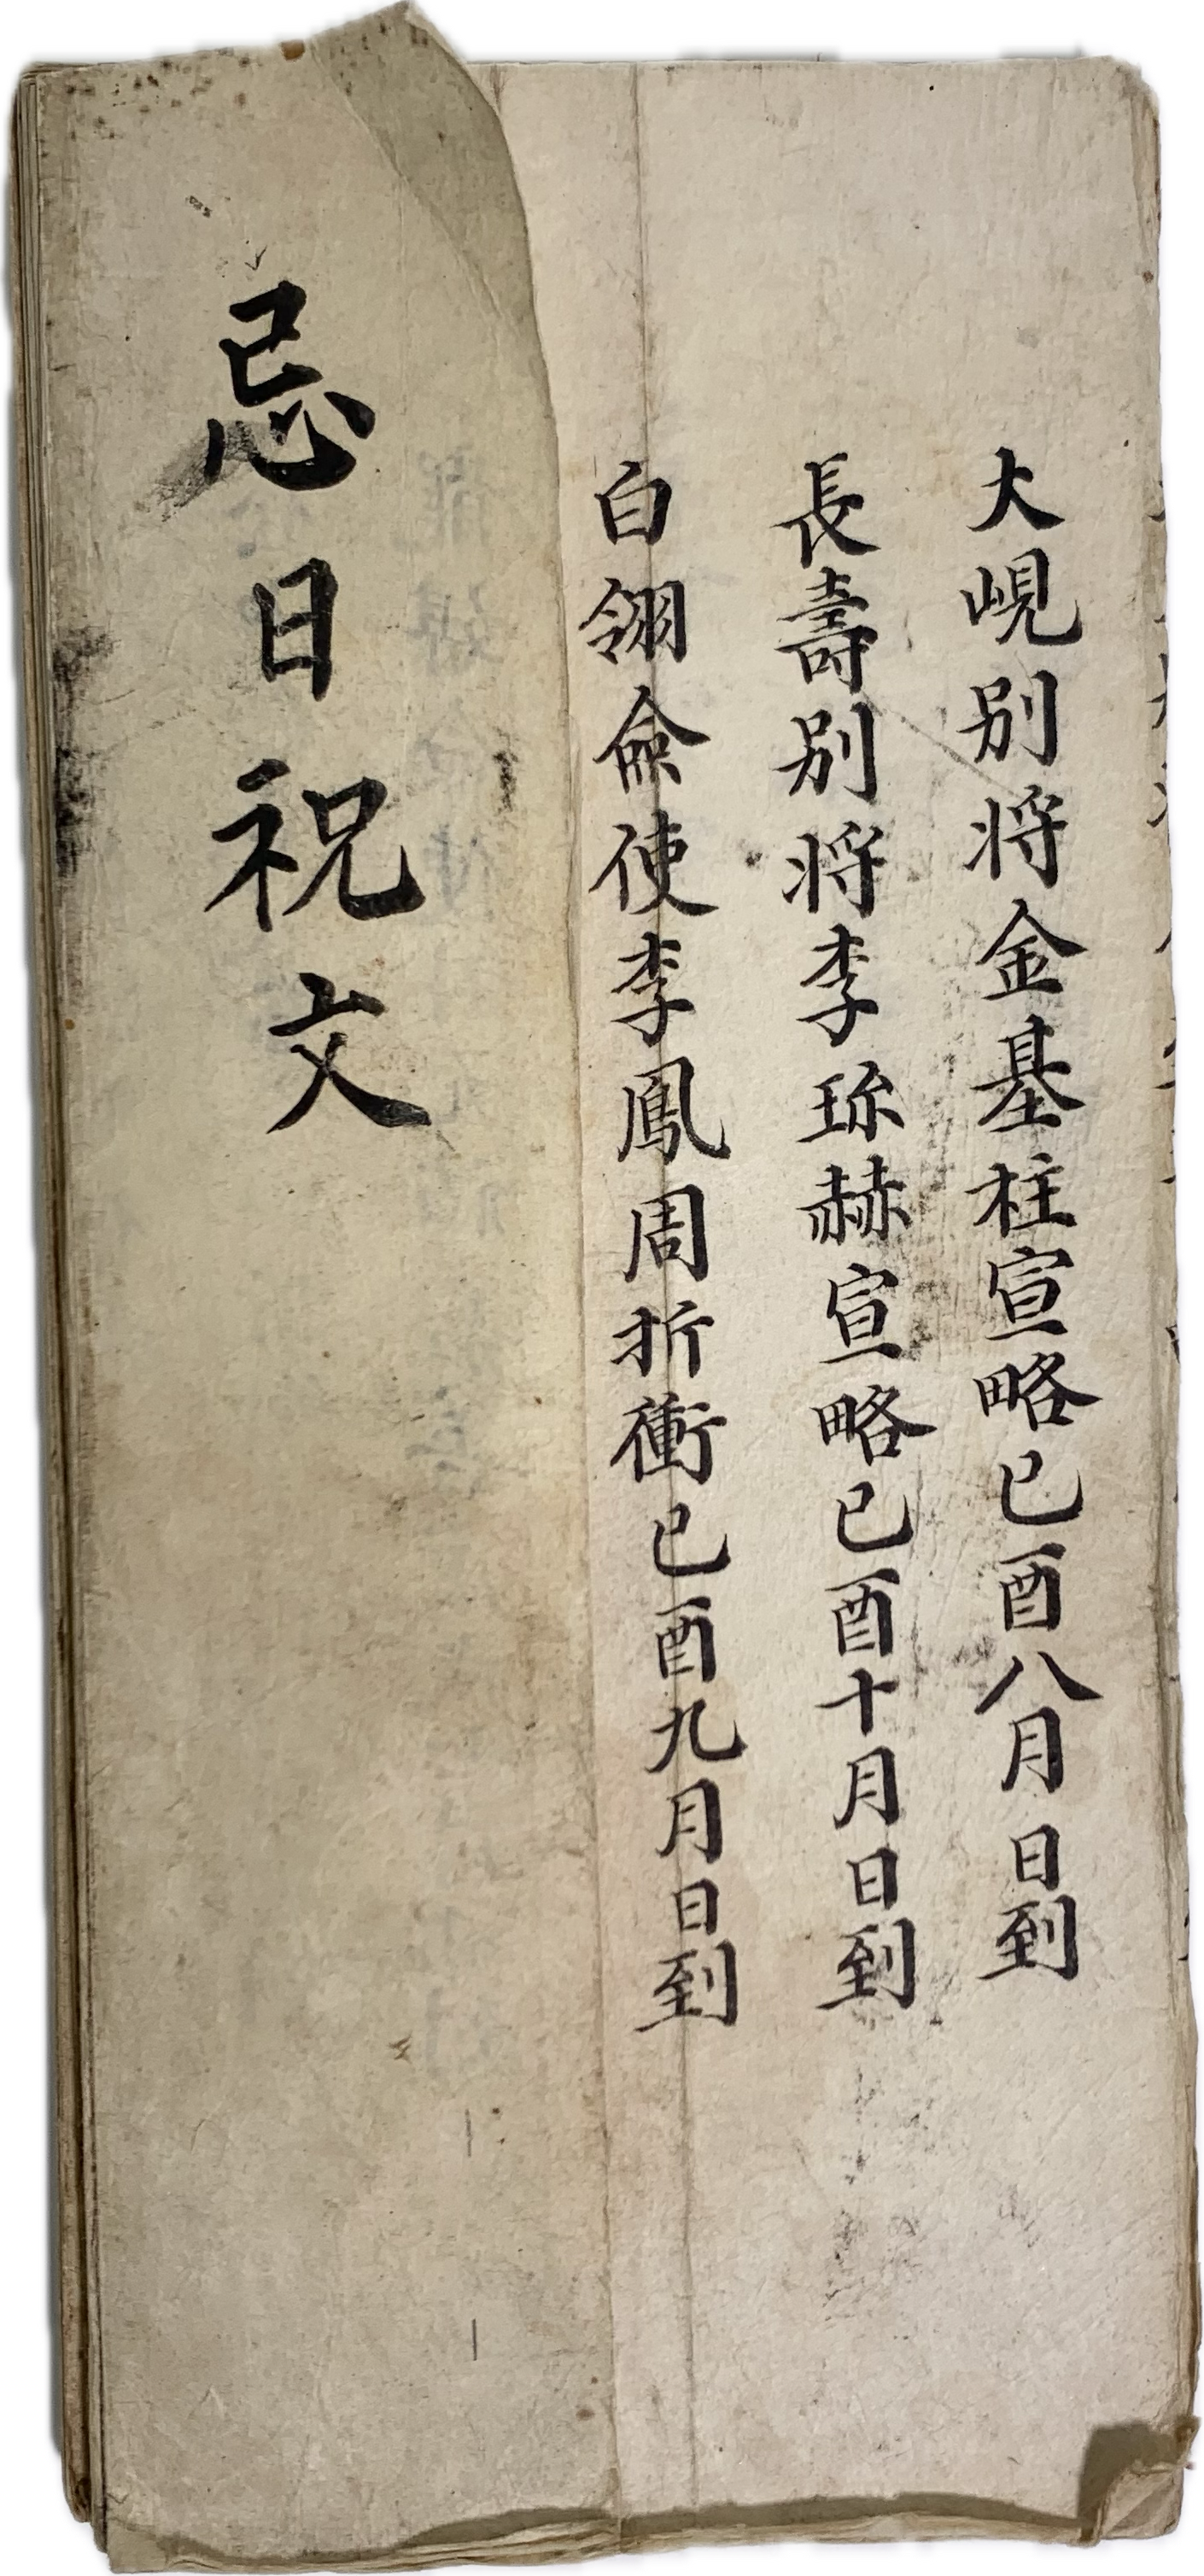 大峴別将金基柱宣略己酉八月日到
長壽別将李珎赫宣略己酉十月日到
白翎僉使李鳳周折衝己酉九月日到
忌日祝文